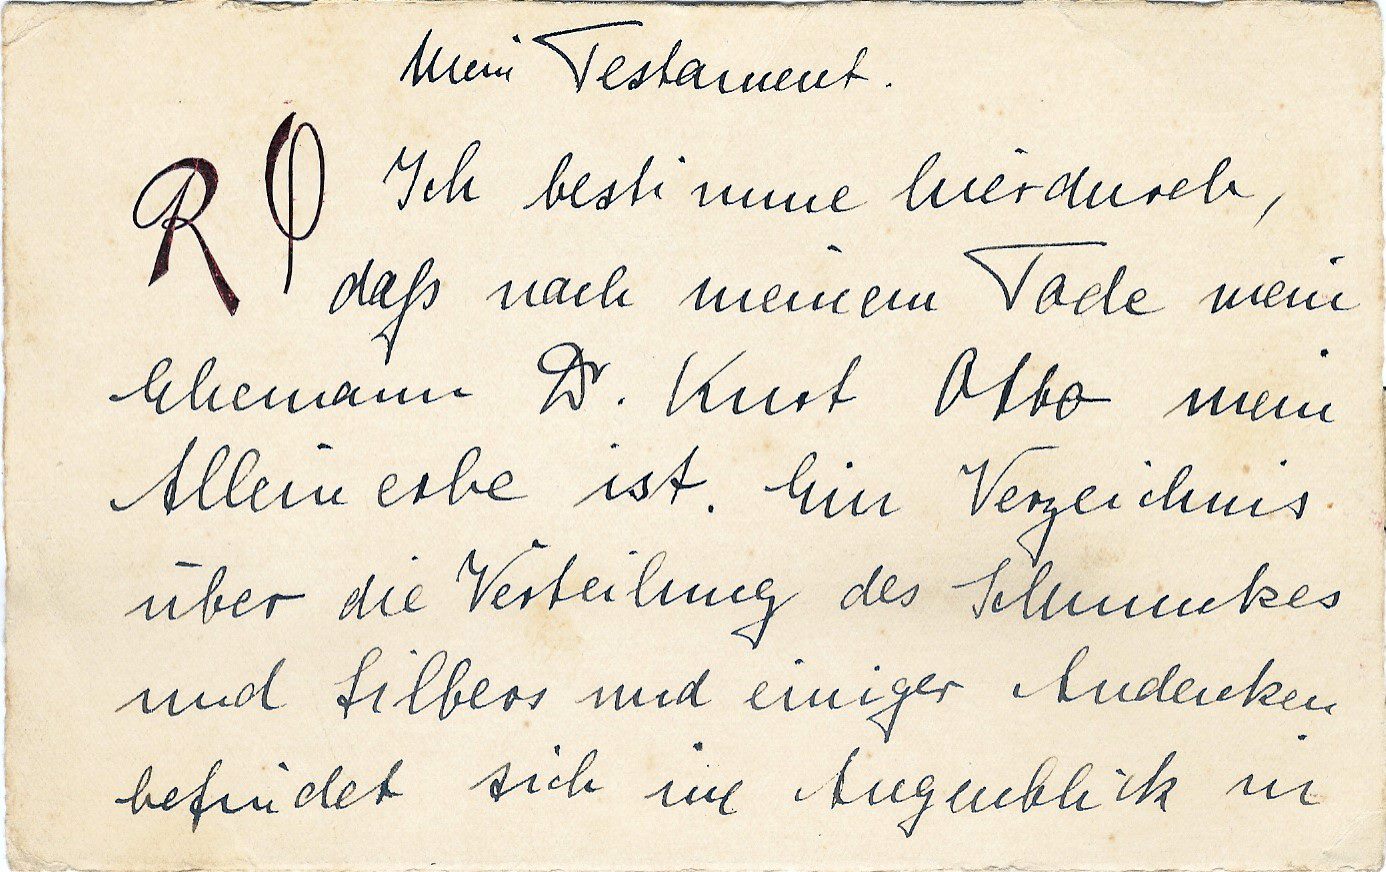 Mein Testament.
RO Ich bestimme hierdurch,
daß nach meinem Tode mein
Ehemann Dr. Kurt Otto mein
Alleinerbe ist. Ein Verzeichnis
über die Verteilung des Schmuckes
und Silbers und einiger Andenken
befindet sich im Augenblick in